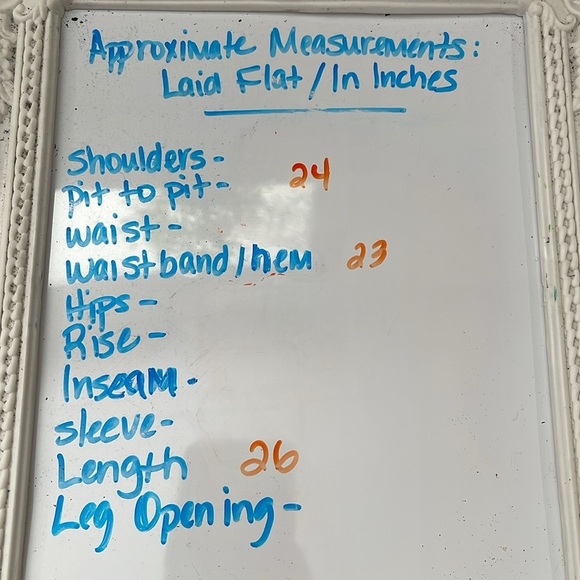 Approximate Measurements:
Laid Flat/In Inches
Shoulders-
pit to pit- 24
waist-
waistband/hem 23
Hips-
Rise-
Inseam-
sleeve-
Length 26
Leg Opening-